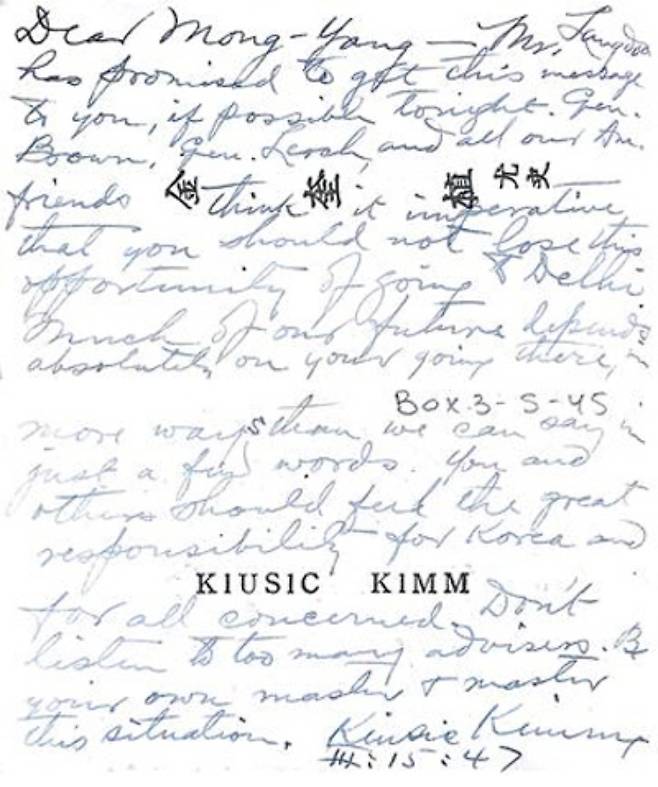 Dear Mong-Yang — Mr. Langdon
has promised to get this message
to you, if possible tonight. Gen.
Brown, Gen. Lerch, and all our Am.
金 奎 植 尤史
friends think it imperative
that you should not lose this
opportunity of going to Delhi.
Much of our future depends
absolutely on your going there, in
Box 3-S-45
more ways than we can say in
just a few words. You and
others should feel the great
responsibility for Korea and
KIUSIC KIMM
for all concerned. Don't
listen to too many advisers. B
your own master & master
this situation. Kiusic Kimm
III : 15 : 47